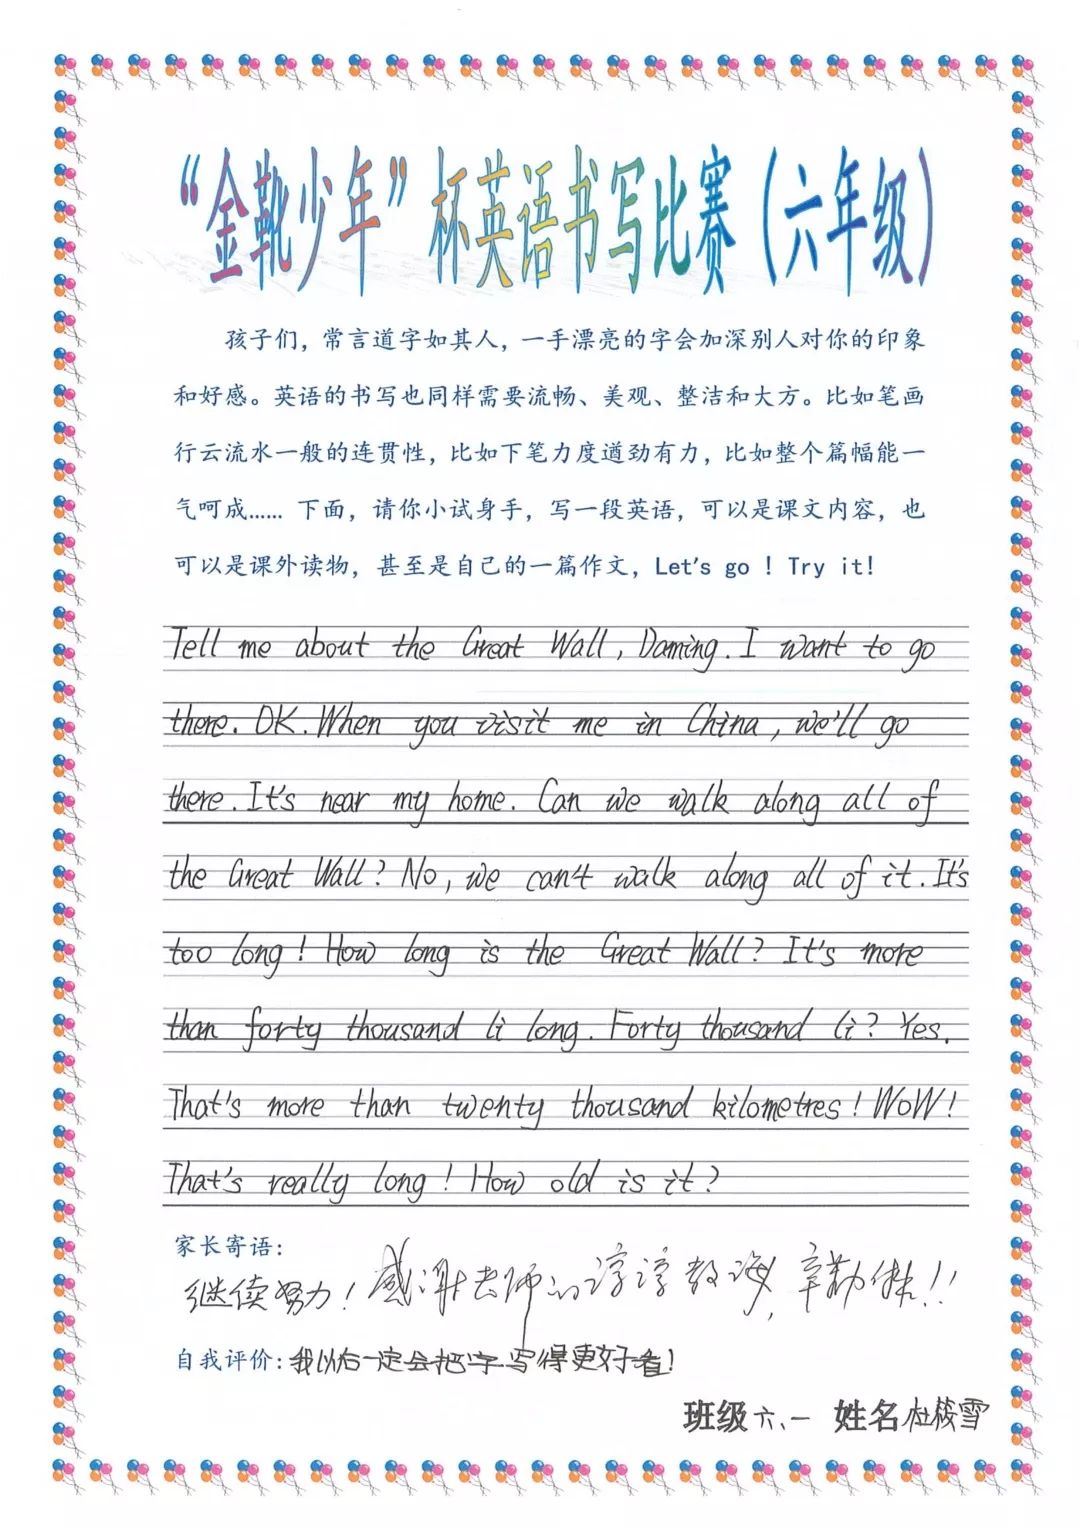 “金靴少年”杯英语书写比赛（六年级）
孩子们，常言道字如其人，一手漂亮的字会加深别人对你的印象
和好感。英语的书写也同样需要流畅、美观、整洁和大方。比如笔画
行云流水一般的连贯性，比如下笔力度遒劲有力，比如整个篇幅能一
气呵成…… 下面，请你小试身手，写一段英语，可以是课文内容，也
可以是课外读物，甚至是自己的一篇作文，Let's go ! Try it!
Tell me about the Great Wall, Daming. I want to go
there. OK. When you visit me in China, we'll go
there. It's near my home. Can we walk along all of
the Great Wall? No, we can't walk along all of it. It's
too long! How long is the Great Wall? It's more
than forty thousand li long. Forty thousand li? Yes.
That's more than twenty thousand kilometres! WoW!
That's really long! How old is it?
家长寄语：
继续努力！感谢老师的谆谆教诲，辛勤付出!!
自我评价：我以后一定会把字写得更好看！
班级 六、一 姓名 杜筱雪